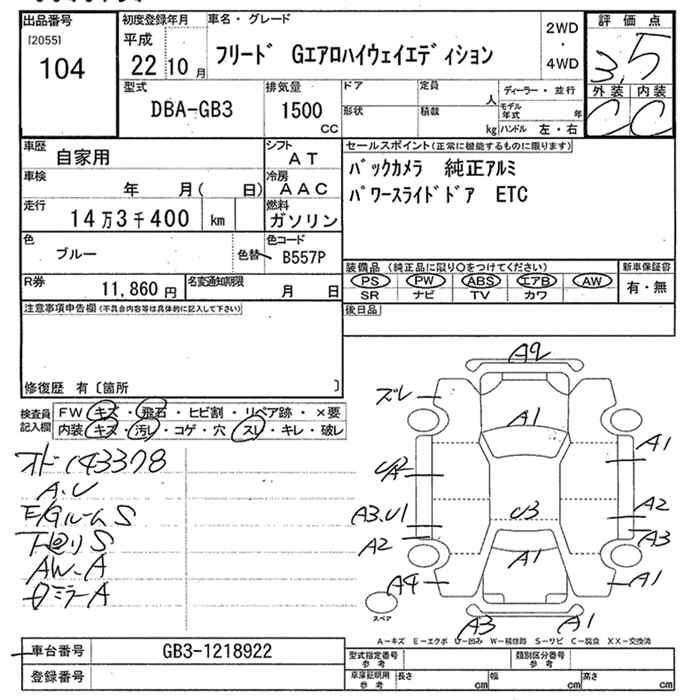 出品番号
[2055]
104
初度登録年月
平成
22 10 月
車名・グレード
フリード Gエアロハイウェイエディション
2WD
・
4WD
評価点
3,5
外装 内装
C C
型式
DBA-GB3
排気量
1500
CC
ドア
形状
定員
人
積載
kg
ディーラー・並行
モデル年式
年
ハンドル 左・右
車歴
自家用
シフト
AT
車検
年 月( 日)
冷房
AAC
走行
14万3千400 km
燃料
ガソリン
色
ブルー
色替
色コード
B557P
R券
11,860 円
名変通知期限
月 日
セールスポイント(正常に機能するものに限ります)
バックカメラ 純正アルミ
パワースライドドア ETC
装備品 (純正品に限り○をつけてください)
PS PW ABS エアB AW
SR ナビ TV カワ
新車保証書
有・無
注意事項申告欄(不具合内容等は具体的に記入して下さい)
後日品
修復歴 有〔箇所 〕
検査員記入欄
FW キズ・飛石・ヒビ割・リペア跡・×要
内装 キズ・汚レ・コゲ・穴・スレ・キレ・破レ
143378
A.U
E/Gルーム S
下回り S
AW-A
ロミラーA
A2
ズレ
A1
U2
A1
A3.U1
U3
A2
A2
A3
A1
A4
A1
スペア
A3
A1
A-キズ E-エクボ U-凹み W-補修跡 S-サビ C-腐食 XX-交換済
車台番号
GB3-1218922
登録番号
型式指定番号
参考
類別区分番号
参考
車庫証明用
参考
長さ
cm
幅
cm
高さ
cm